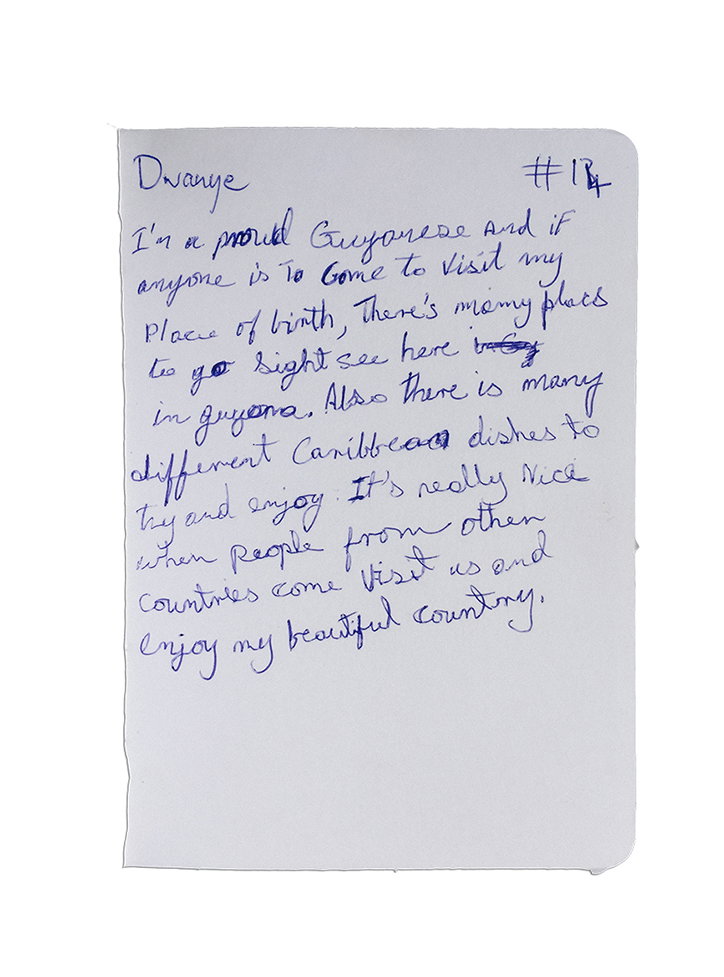 Dwanye #14
I'm a proud Guyanese and if
anyone is To Come to Visit my
Place of birth, There's many placs
to go sight see here
in guyana. Also there is many
different Caribbean dishes to
try and enjoy. It's really Nice
when People from other
Countries come Visit us and
enjoy my beautiful country.